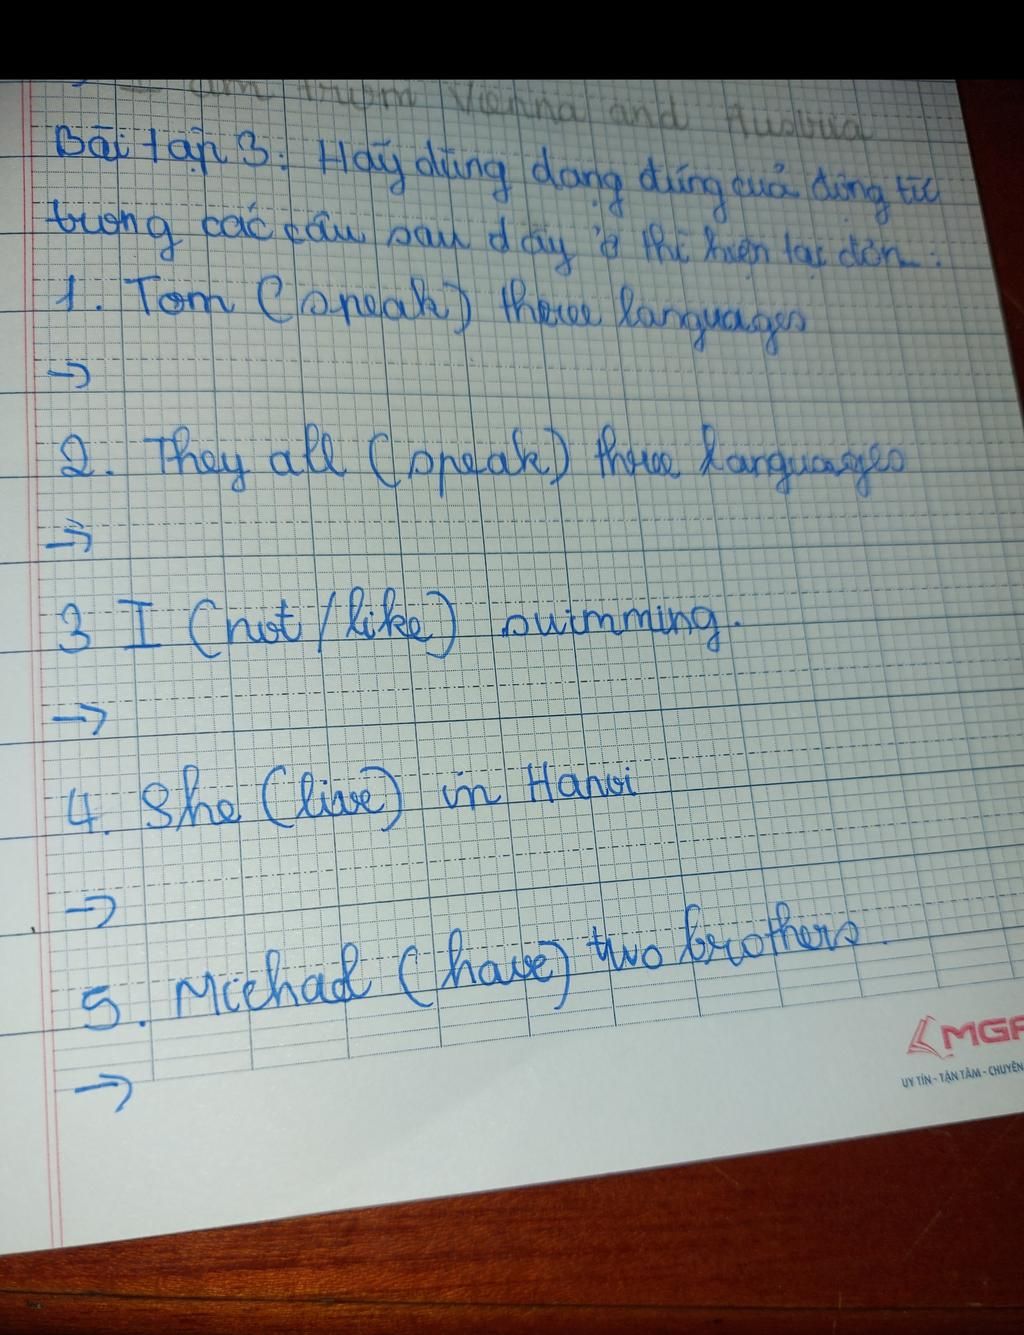 am from Vienna and Austria
Bài tập 3: Hãy dùng dạng đúng của động từ
trong các câu sau đây ở thì hiện tại đơn:
1. Tom (speak) three languages
→
2. They all (speak) three languages
→
3 I (not/like) swimming.
→
4. She (live) in Hanoi
→
5. Michael (have) two brothers.
→
MGP
UY TÍN - TẬN TÂM - CHUYÊN